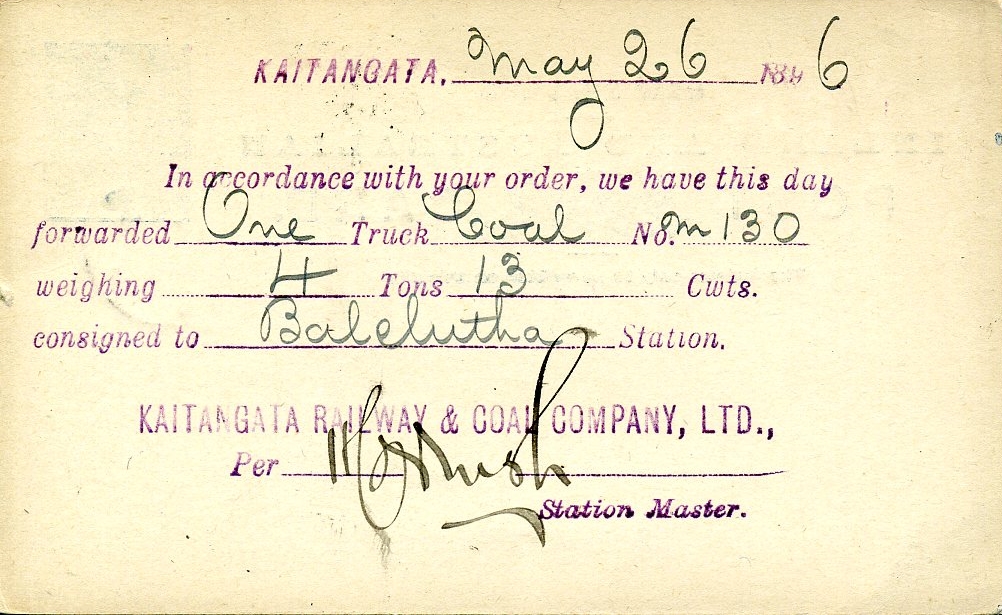 KAITANGATA, May 26 1896
In accordance with your order, we have this day
forwarded One Truck Coal No. m 130
weighing 4 Tons 13 Cwts.
consigned to Balclutha Station.
KAITANGATA RAILWAY & COAL COMPANY, LTD.,
Per
Station Master.